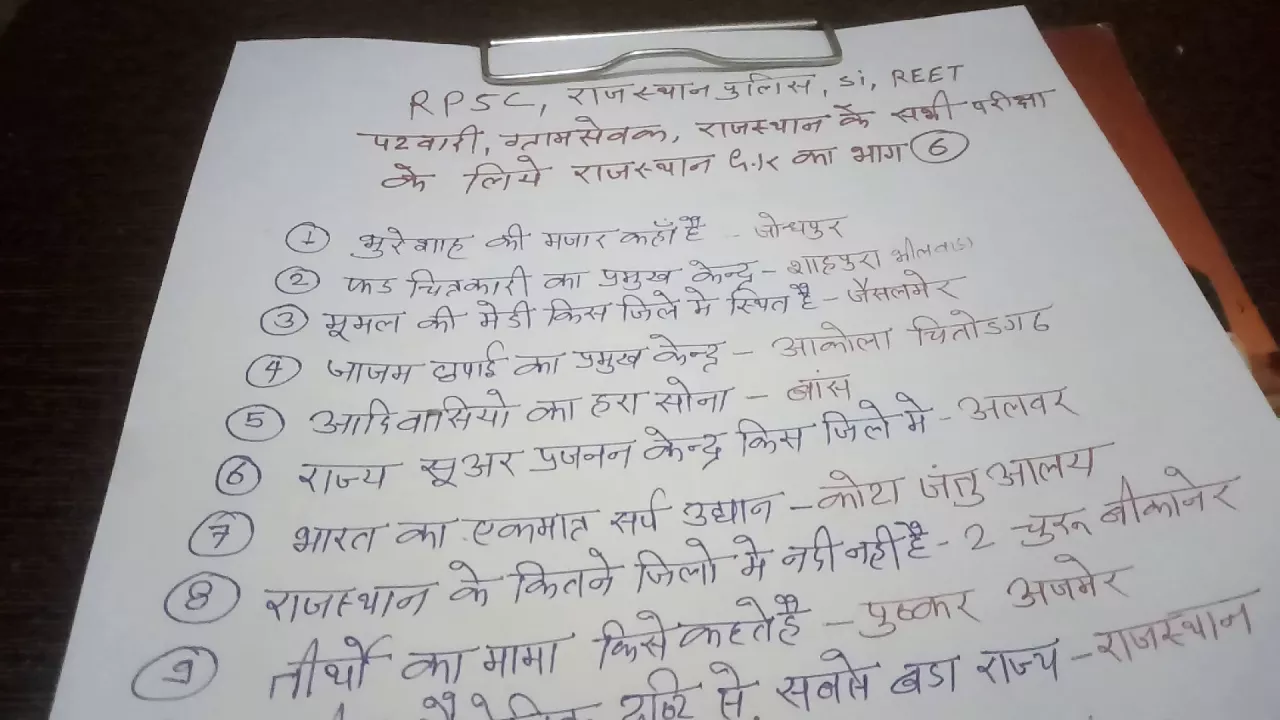 RPSC, राजस्थान पुलिस, Si, REET
पटवारी, ग्रामसेवक, राजस्थान के सभी परीक्षा
के लिये राजस्थान G.K का भाग 6
1 भुरेशाह की मजार कहाँ है - जोधपुर
2 फड चित्रकारी का प्रमुख केन्द्र - शाहपुरा भीलवाडा
3 मूमल की मेडी किस जिले मे स्थित है - जैसलमेर
4 जाजम छपाई का प्रमुख केन्द्र - आकोला चितोडगढ
5 आदिवासियो का हरा सोना - बांस
6 राज्य सूअर प्रजनन केन्द्र किस जिले मे - अलवर
7 भारत का एकमात्र सर्प उद्यान - कोटा जंतुआलय
8 राजस्थान के कितने जिलो मे नदी नही है - 2 चुरू बीकानेर
9 तीर्थो का मामा किसे कहते है - पुष्कर अजमेर
दृष्टि से सबसे बडा राज्य - राजस्थान